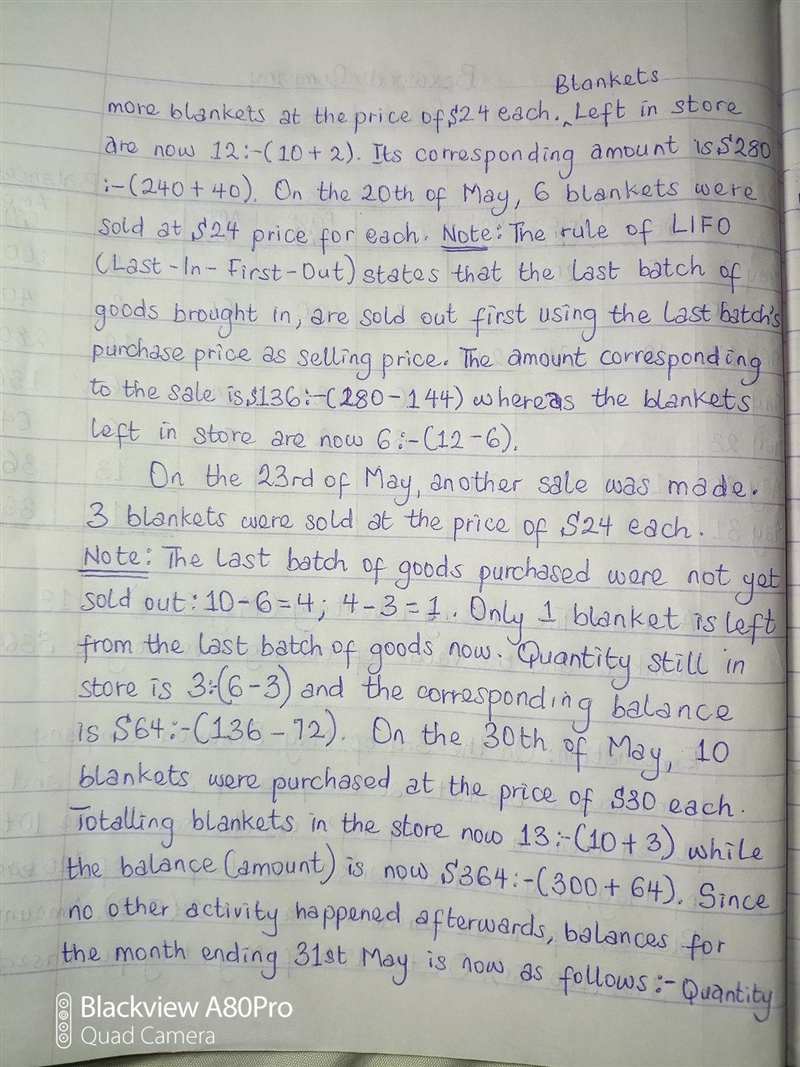 Blankets
more blankets at the price of $24 each. ‸Left in store
are now 12:-(10+2). Its corresponding amount is $280
:-(240+40). On the 20th of May, 6 blankets were
sold at $24 price for each. Note: The rule of LIFO
(Last-In-First-Out) states that the last batch of
goods brought in, are sold out first using the last batch's
purchase price as selling price. The amount corresponding
to the sale is $136:-(280-144) whereas the blankets
left in store are now 6:-(12-6).
On the 23rd of May, another sale was made.
3 blankets were sold at the price of $24 each.
Note: The last batch of goods purchased were not yet
sold out: 10-6=4; 4-3=1. Only 1 blanket is left
from the last batch of goods now. Quantity still in
store is 3:-(6-3) and the corresponding balance
is $64:-(136-72). On the 30th of May, 10
blankets were purchased at the price of $30 each.
Totalling blankets in the store now 13:-(10+3) while
the balance (amount) is now $364:-(300+64). Since
no other activity happened afterwards, balances for
the month ending 31st May is now as follows:- Quantity
Blackview A80Pro
Quad Camera